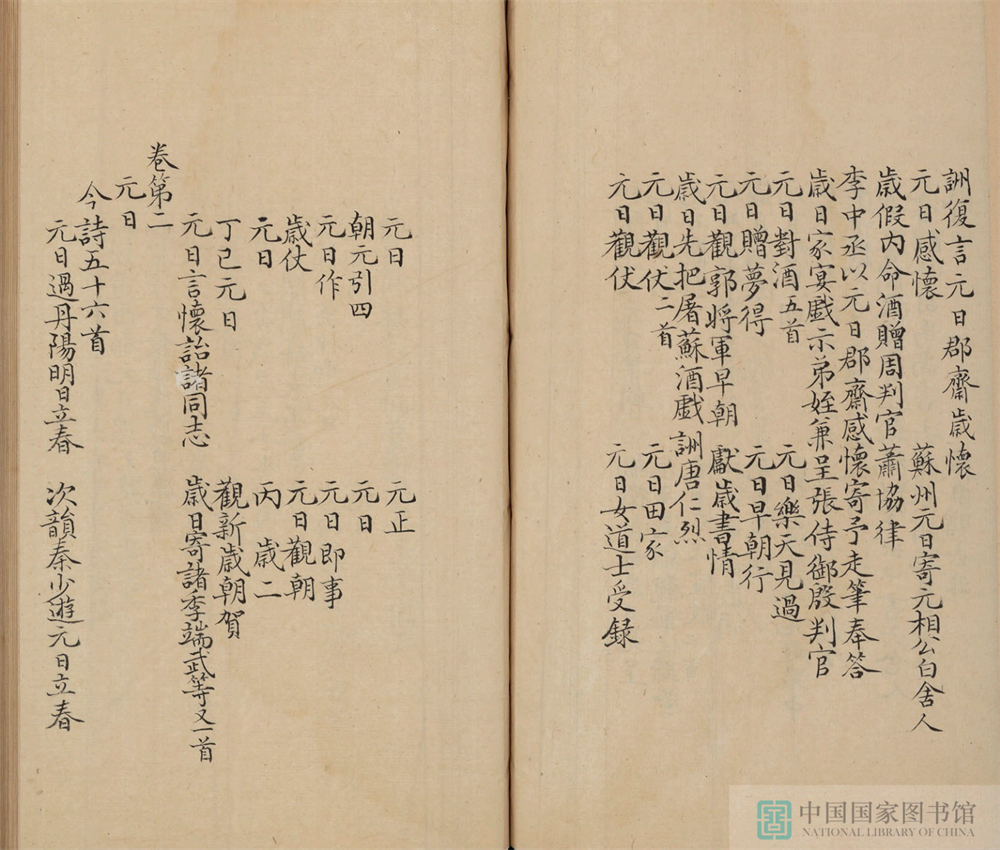 詶復言元日郡齋歳懷
元日感懷 蘇州元日寄元相公白舍人
歳假内命酒贈周判官蕭協律
李中丞以元日郡齋感懷寄予走筆奉答
歳日家宴戲示弟姪兼呈張侍御殷判官
元日對酒五首 元日樂天見過
元日贈夢得 元日早朝行
元日觀郭將軍早朝 獻歳書情
歳日先把屠蘇酒戲詶唐仁烈
元日觀伏二首 元日田家
元日觀伏 元日女道士受録
元日 元正
朝元引四 元日
元日作 元日即事
歳仗 元日觀朝
元日 丙歳二
丁巳元日 觀新歳朝賀
元日言懷詒諸同志 歳日寄諸李端武等又一首
卷第二
元日
今詩五十六首
元日過丹陽明日立春 次韻秦少遊元日立春
中国国家图书馆
NATIONAL LIBRARY OF CHINA